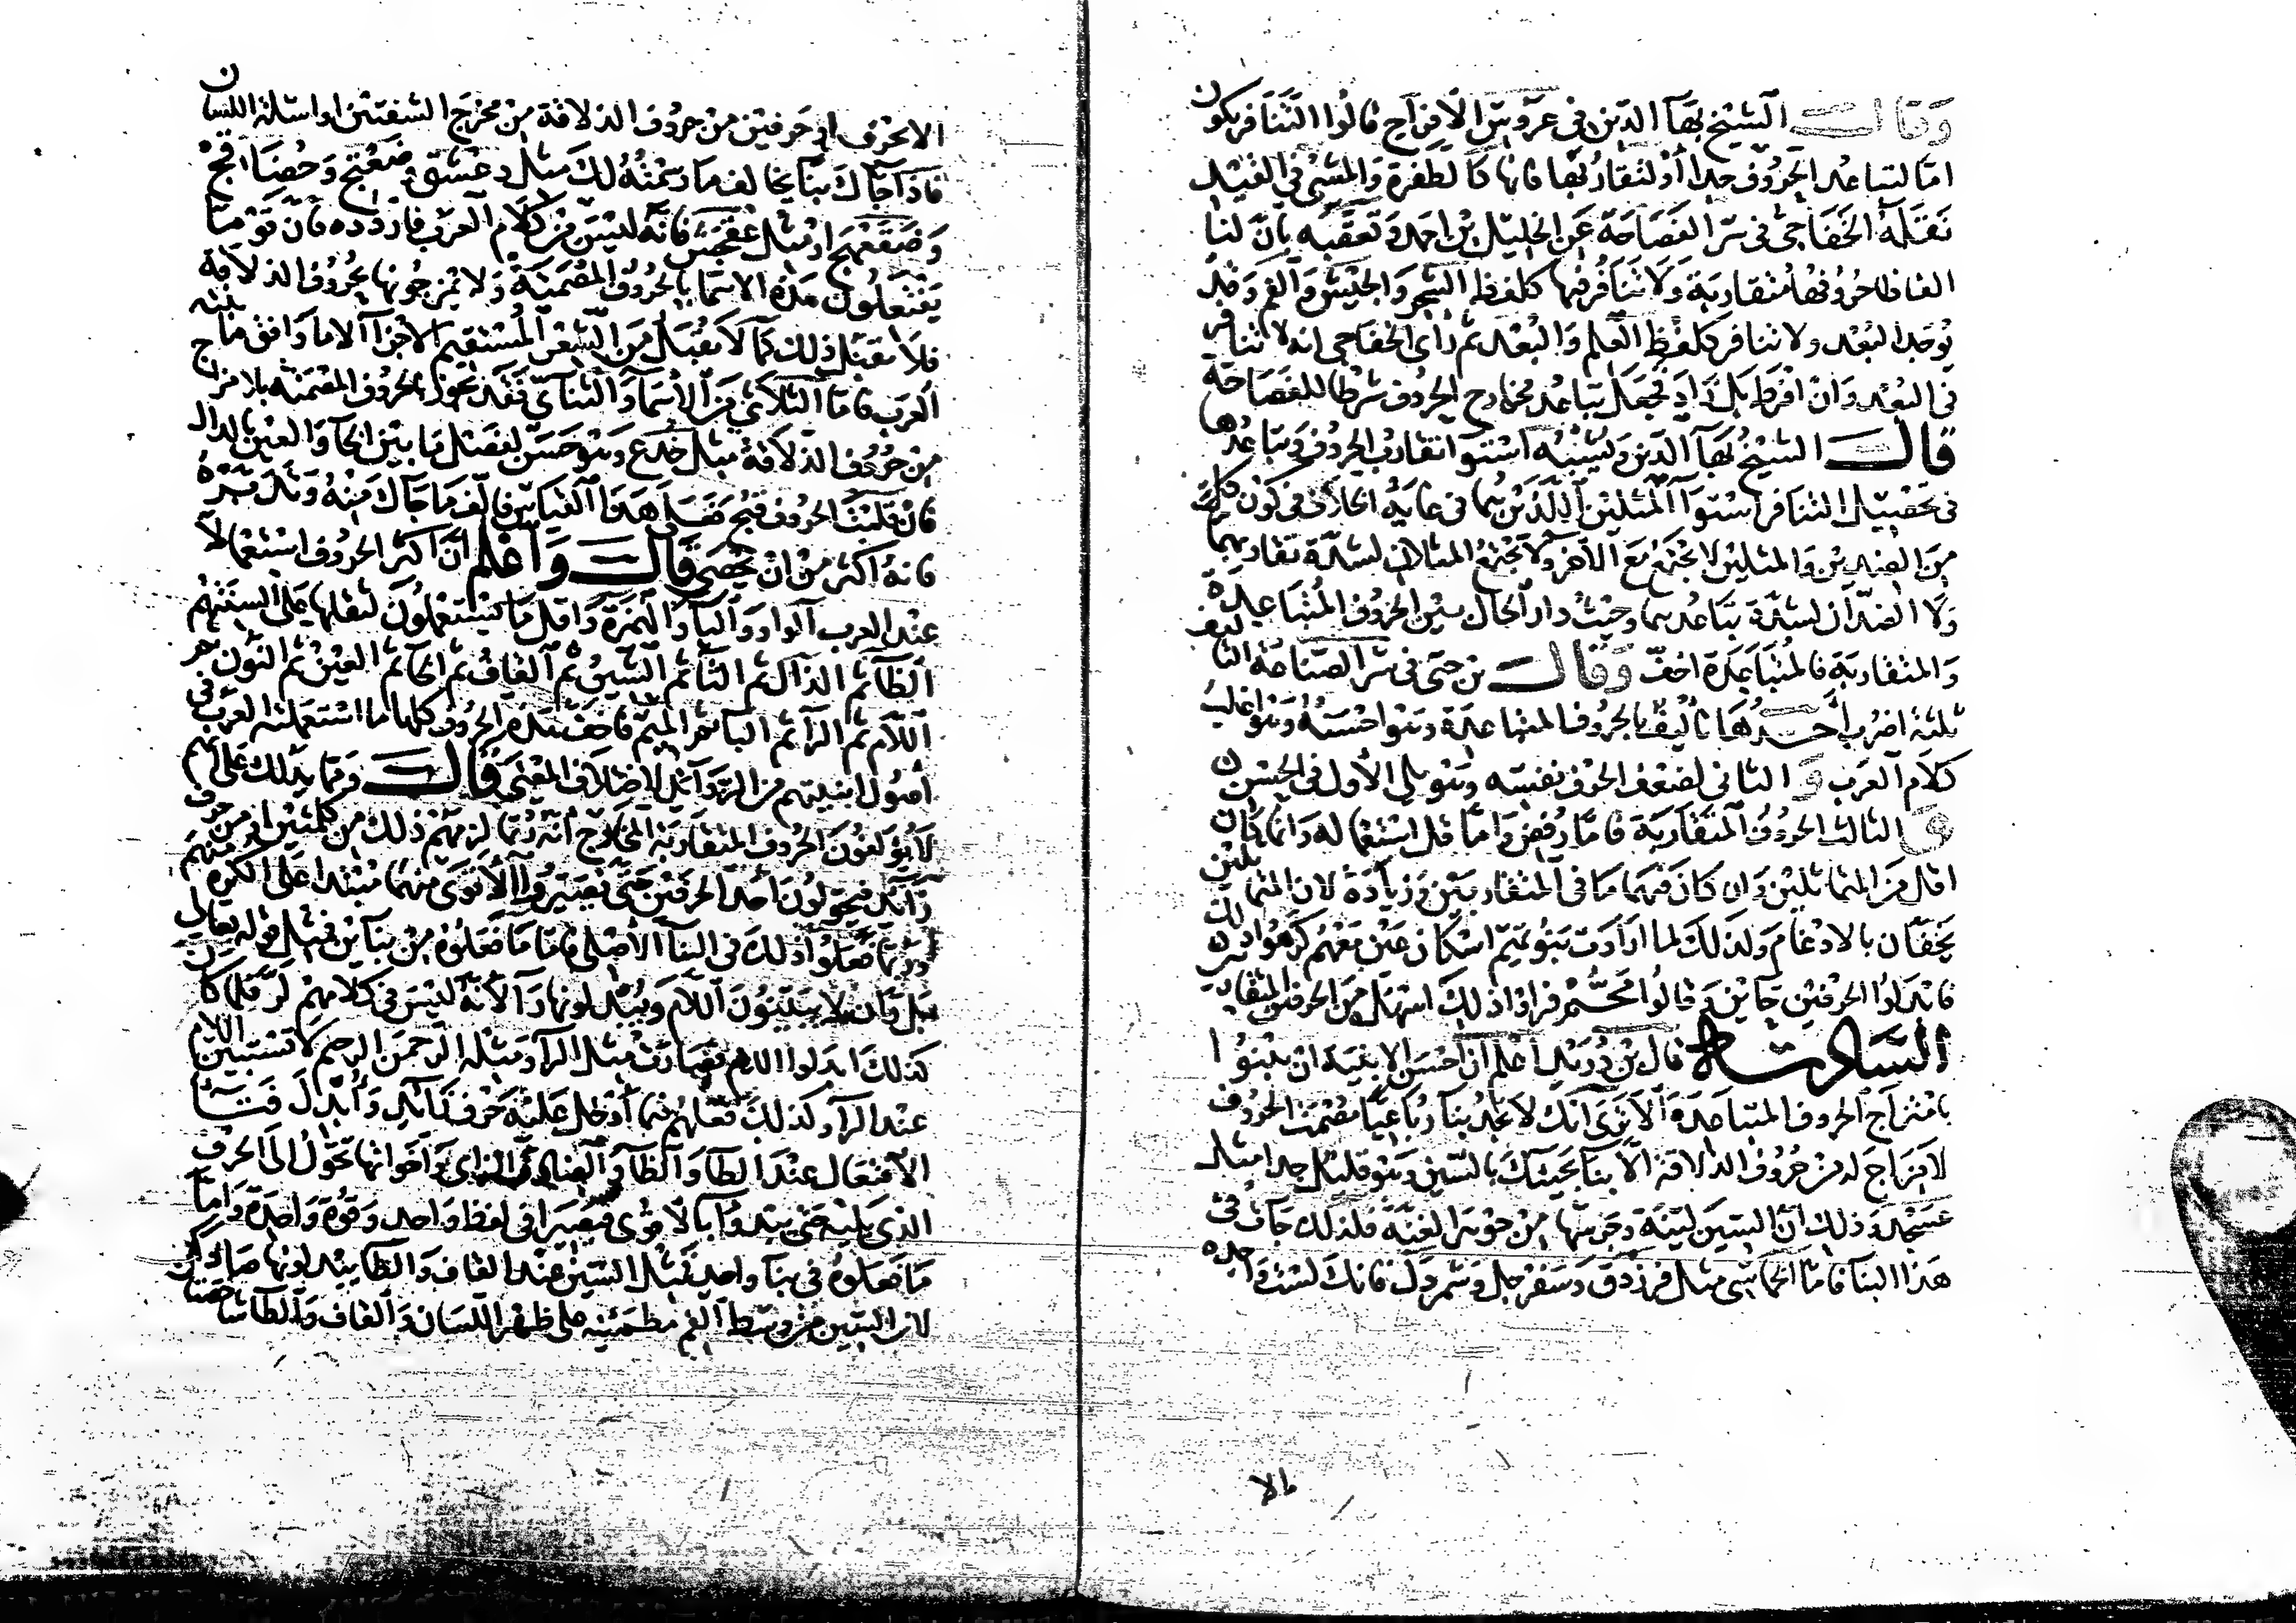 وقال الشيخ بهآ الدين في عروس الافراح قالوا التنافر يكون
اما لتباعد الحروف جدا أو لتقاربها فانها كالطفرة والمشي في القيد
نقله الخفاجي في سر الفصاحة عن الخليل بن احمد وتعقبه بان لنا
الفاظا حروفها متقاربة ولا تنافر فيها كلفظ الشجر والجيش والفم وقد
يوجد البعد ولا تنافر كلفظ العلم والبعد ثم رأى الخفاجي انه لا تنافر
في البعد وان افرط بل زاد فجعل تباعد مخارج الحروف شرطا للفصاحة
قال الشيخ بهآ الدين ويشبه استوا تقارب الحروف وتباعدها
في تحصيل التنافر استوآ المثلين اللذين هما في غاية الخلاف في كون كل
من الضدين والمثلين لا يجتمع مع الآخر ولا يجتمع المثلان لشدة تقاربهما
ولا الضدان لشدة تباعدهما وحيث دار الحال بين الحروف المتباعدة
والمتقاربة فالمتباعدة اخف وقال بن جني في سر الصناعة التاليف
ثلثة اضرب أحدها تاليف الحروف المتباعدة وهو احسنه وهو اغلب
كلام العرب و الثاني لضعف الحرف نفسه وهو يلي الأول في الحسن
و الثالث الحروف المتقاربة فاما رفض واما قل استعماله وانما كان
اقل من المتماثلين وان كان فيهما ما في المتقاربين وزيادة لان المتماثلين
يخفان بالادغام ولذلك لما ارادت بنو تميم اسكان عين معهم كرهوا ذلك
فابدلوا الحرفين حاين وقالوا محم فراوا ذلك اسهل من الحرفين المتقاربين
السادسة قال بن دريد اعلم ان احسن الابنية ان يبنوا
بامتزاج الحروف المتباعدة ألا ترى انك لا تجد بنآ رباعيا مصمت الحروف
لا مزاج له من حروف الذلاقة الا بنآ يجيئك بالسين وهو قليل جدا مثل
عسجد وذلك ان السين لينة وجرسها من جوهر الغنة فلذلك جات في
هذا البنآ فاما الخماسي مثل فرزدق وسفرجل وشمردل فانك لست واجده
الا بحرف او حرفين من حروف الذلاقة من مخرج الشفتين او اسلة اللسان
فاذا جآك بنآ يخالف ما رسمته لك مثل دعشق وضعثج وحضافج
وضقعهج او مثل عقجش فانه ليس من كلام العرب فاردده فان قوما
يفتعلون هذه الاسما بالحروف المصمتة ولا يمزجونها بحروف الذلاقة
فلا تقبل ذلك كما لا تقبل من الشعر المستقيم الاجزآ الا ما وافق ما بنته
العرب فاما الثلاثي من الاسما والثنآي فقد يجوز بالحروف المصمتة بلا مزاج
من حروف الذلاقة مثل خدع وهو حسن لفصل ما بين الخآ والعين بالدال
فان قلبت الحروف قبح فعلى هذا القياس فالف ما جاك منه وتدبره
فانه اكثر من ان يحصى قال واعلم ان اكثر الحروف استعمالا
عند العرب الواو والياء والهمزة واقل ما يستعملون لثقلها على السنتهم
الظآ ثم الذال ثم الثآ ثم الشين ثم القاف ثم الخآ ثم العين ثم النون ثم
اللام ثم الرآ ثم البآ ثم الميم فاخف هذه الحروف كلها ما استعملته العرب في
اصول ابنيتهم من الزوآئد لاختلاف المعنى قال ومما يدلك على انهم
لا يؤلفون الحروف المتقاربة المخارج انه ربما لزمهم ذلك من كلمتين او من حرف
زآئد فيحولون احد الحرفين حتى يصيروا الاقوى منهما مبتدا على الكره منهم
وربما فعلوا ذلك في البنآ الاصلي فاما ما فعلوه من بنآين فمثل قوله تعالى
بل ران لا يبينون اللام ويبدلونها رآ لانه ليس في كلامهم لر فلما كان
كذلك ابدلوا اللام فصارت مثل الرآ ومثله الرحمن الرحيم لا تستبين اللام
عند الرآ وكذلك فعلهم فيما أدخل عليه حرف زآئد وأبدل فتآ
الافتعال عند الطآ والظآ والضاد والزاي واخواتها تحول الى الحرف
الذي يليه حتى يبدوآ بالاقوى فيصيرا في لفظ واحد وقوة واحدة واما
ما فعلوه في بنآ واحد فمثل السين عند القاف والطآ يبدلونها صادا
لان السين من وسط الفم مطمئنه على ظهر اللسان والقاف والطآ شاخصتان